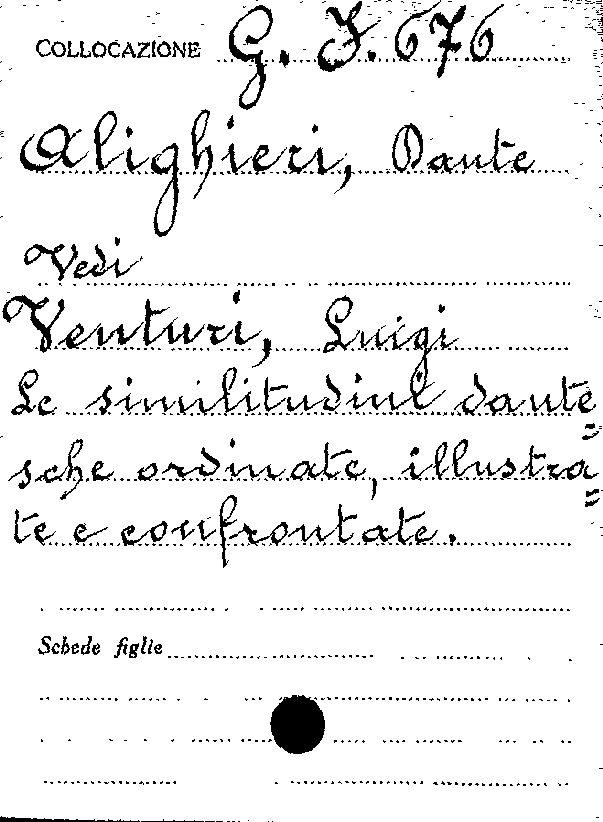 COLLOCAZIONE G. I. 676
Alighieri, Dante
Vedi
Venturi, Luigi
Le similitudini dante=
sche ordinate, illustra=
te e confrontate.
Schede figlie